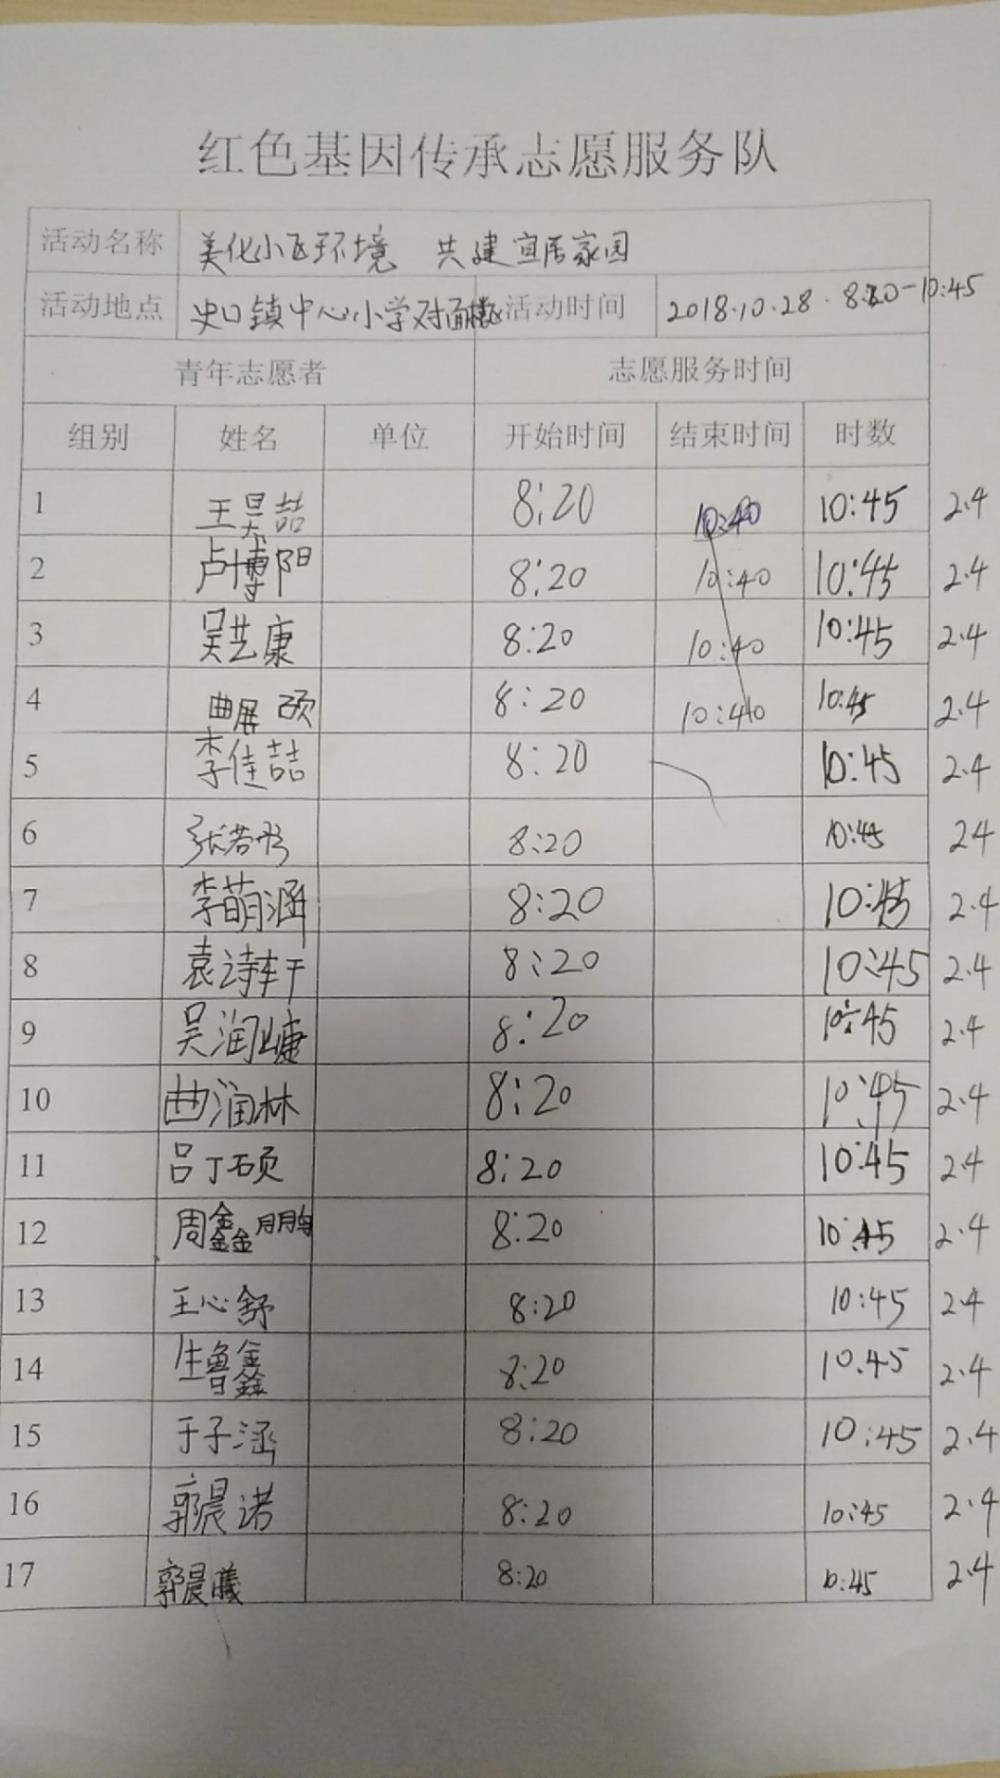 红色基因传承志愿服务队
活动名称 美化小区环境 共建宜居家园
活动地点 史口镇中心小学对面 活动时间 2018.10.28. 8:20-10:45
青年志愿者 志愿服务时间
组别 姓名 单位 开始时间 结束时间 时数
1 王昊喆 8:20 10:40 10:45 2.4
2 卢博阳 8:20 10:40 10:45 2.4
3 吴艺康 8:20 10:40 10:45 2.4
4 曲展硕 8:20 10:40 10:45 2.4
5 李佳喆 8:20 10:45 2.4
6 张若彤 8:20 10:45 24
7 李萌涵 8:20 10:45 2.4
8 袁诗轩 8:20 10:45 2.4
9 吴润 8:20 10:45 2.4
10 曲润林 8:20 10:45 2.4
11 吕丁硕 8:20 10:45 2.4
12 周鑫鹏 8:20 10:45 2.4
13 王心舒 8:20 10:45 2.4
14 生鲁鑫 8:20 10.45 2.4
15 于子涵 8:20 10:45 2.4
16 郭晨诺 8:20 10:45 2.4
17 郭晨曦 8:20 10:45 2.4